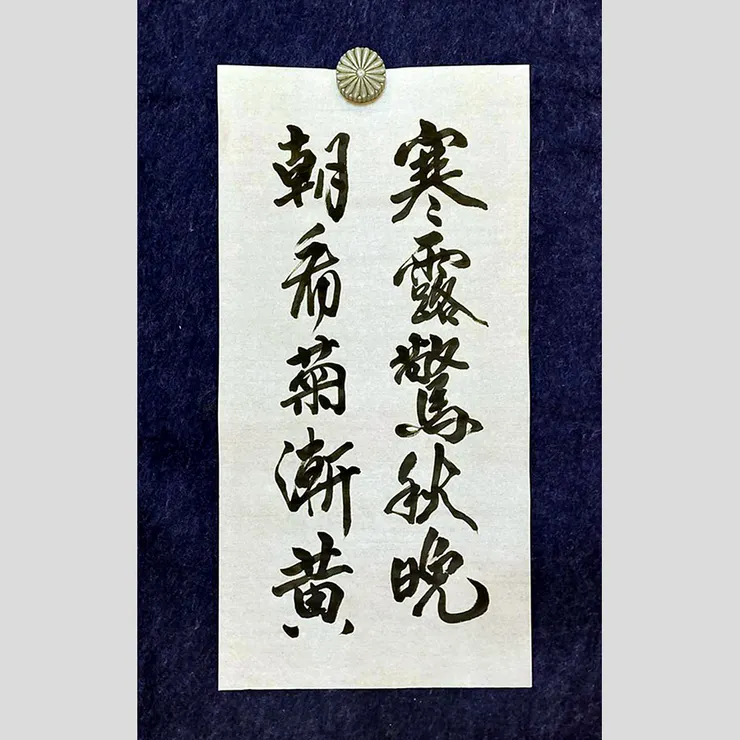 寒露驚秋晩
朝看菊漸黄